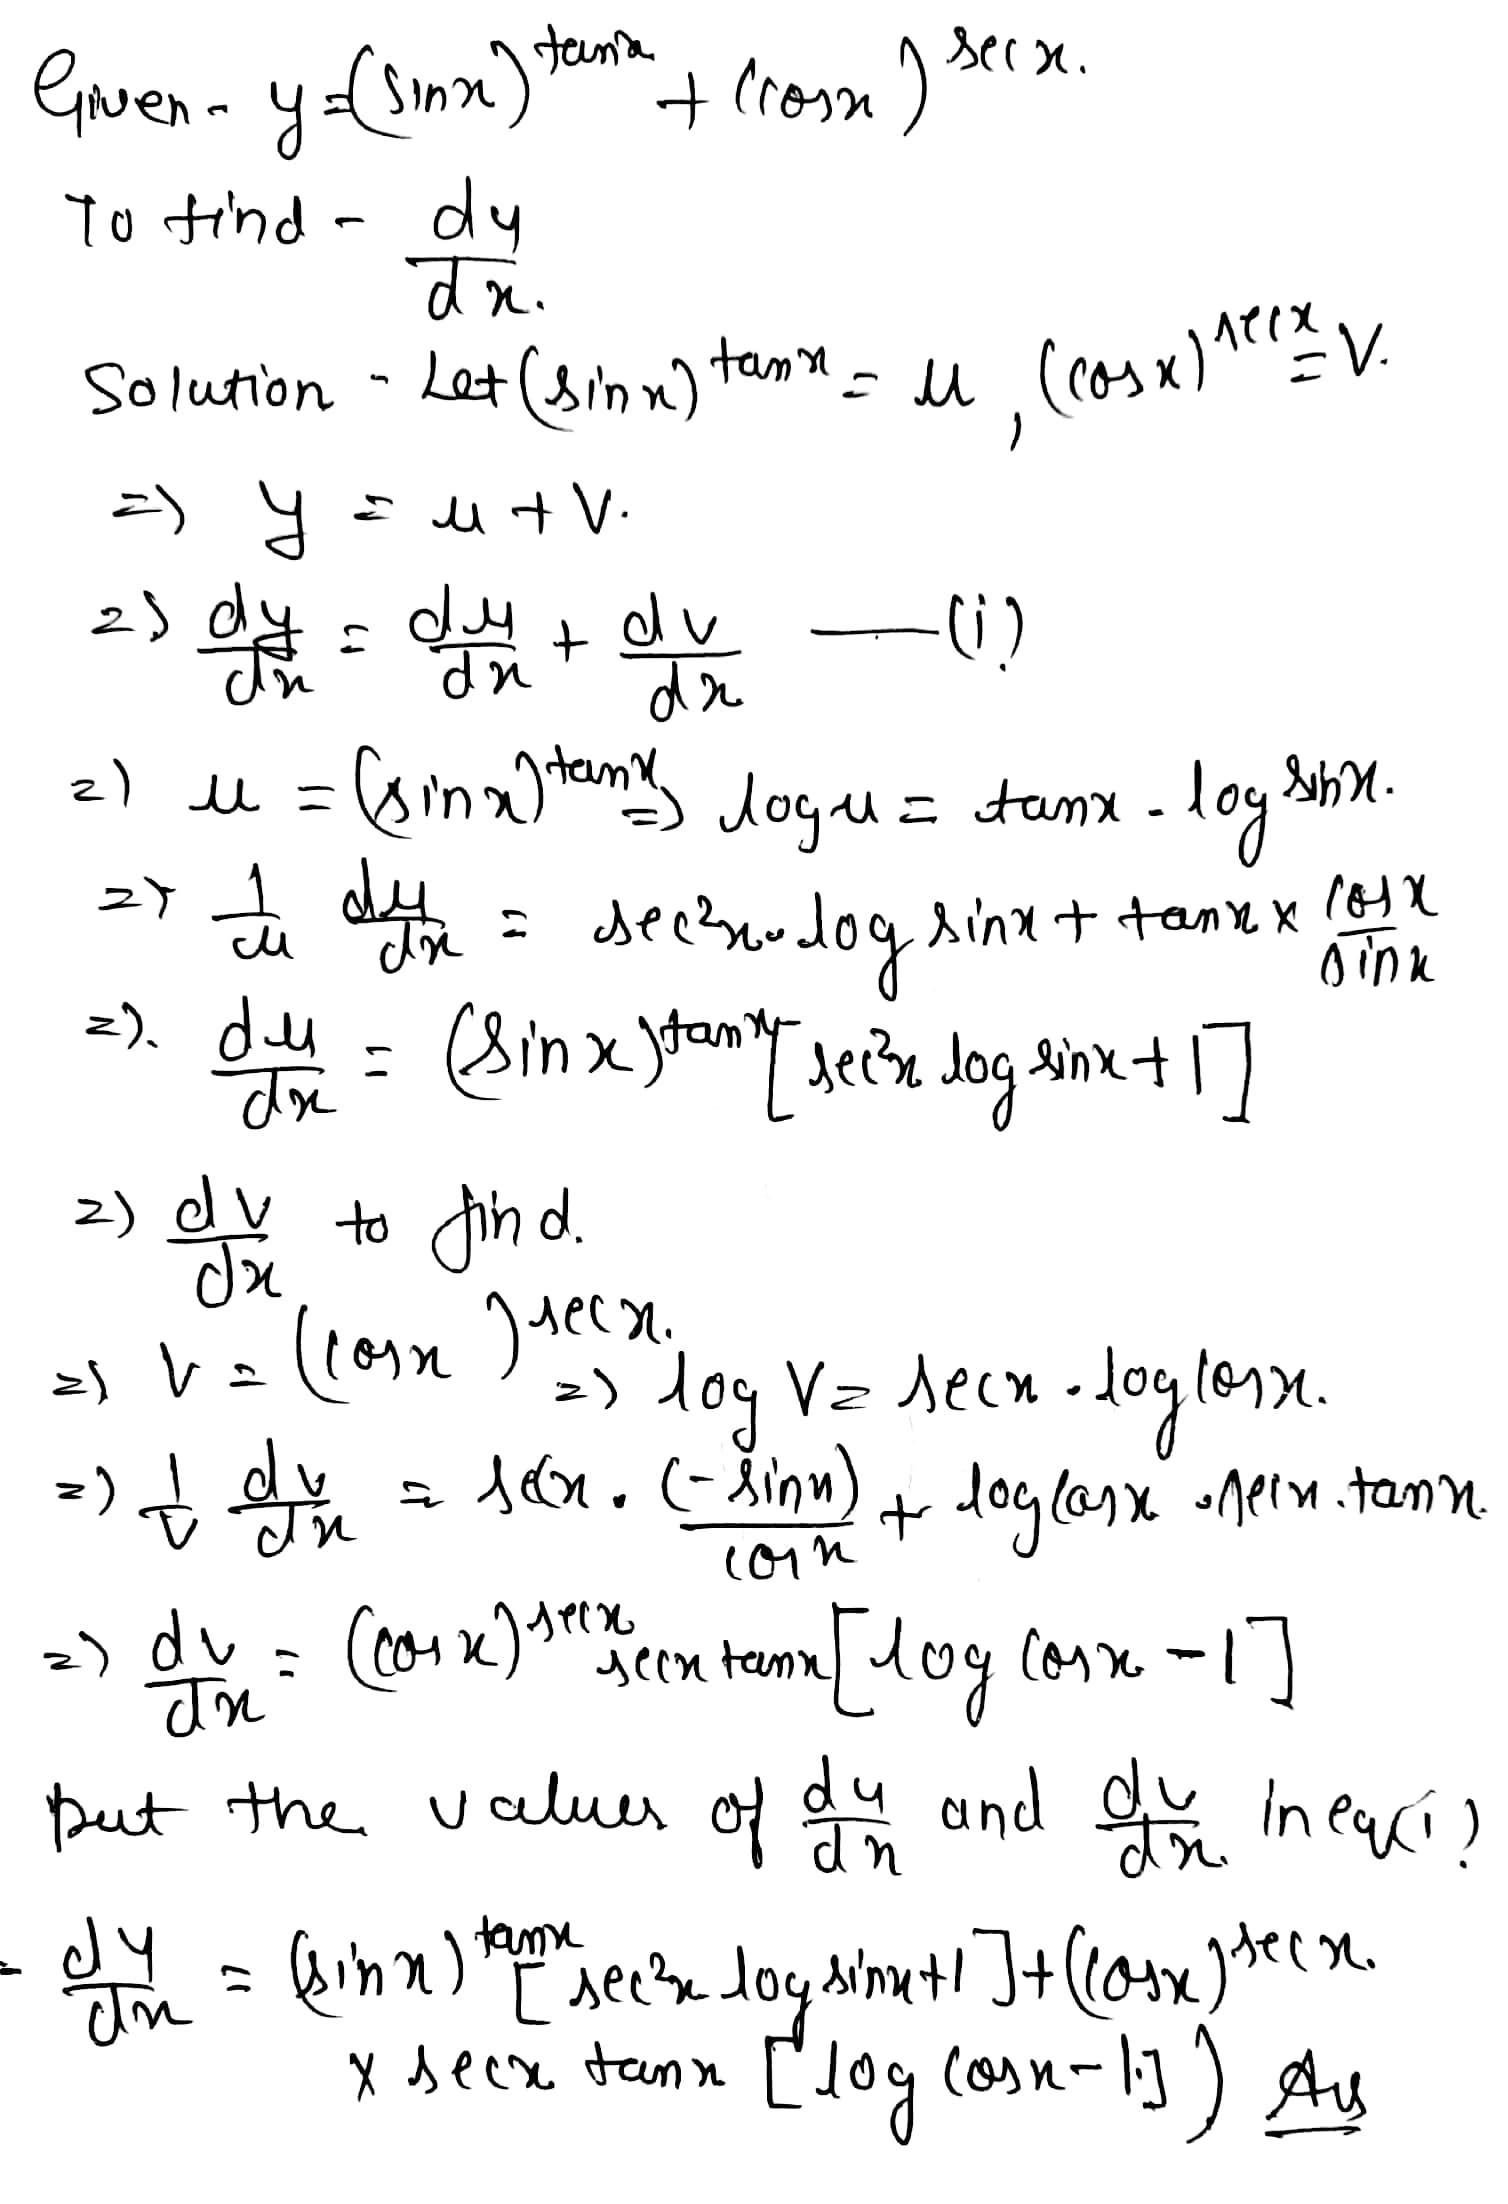 Given - y = (sinx)^tanx + (cosx)^secx.
To find - dy/dx.
Solution - Let (sinx)^tanx = u, (cosx)^secx = v.
=> y = u + v.
=> dy/dx = du/dx + dv/dx —(i)
=> u = (sinx)^tanx => log u = tanx . log sinx.
=> 1/u du/dx = sec²x . log sinx + tanx x cosx/sinx
=>. du/dx = (sinx)^tanx [sec²x log sinx + 1]
=> dv/dx to find.
=> v = (cosx)^secx. => log v = secx . log cosx.
=> 1/v dv/dx = secx . (-sinx)/cosx + log cosx . secx . tanx.
=> dv/dx = (cosx)^secx secx tanx [log cosx - 1]
put the values of du/dx and dv/dx. in eq(i)
- dy/dx = (sinx)^tanx [sec²x log sinx + 1] + ((cosx)^secx.
x secx tanx [log cosx - 1.]) Ans